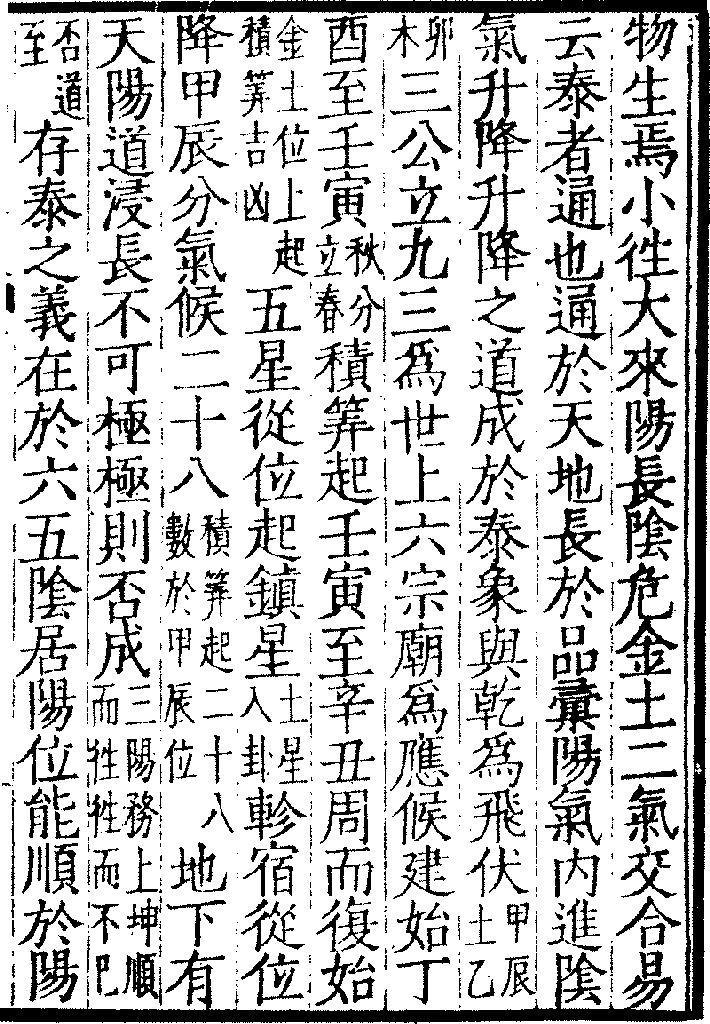 物生焉小徃大來陽長陰危金土二氣交合易
云泰者通也通於天地長於品彚陽氣內進陰
氣升降升降之道成於泰象與乾爲飛伏甲辰土乙
卯木三公立九三爲世上六宗廟爲應候建始丁
酉至壬寅秋分立春積筭起壬寅至辛丑周而復始
金土位上起積筭吉凶五星從位起鎮星土星入卦軫宿從位
降甲辰分氣候二十八積筭起二十八數於甲辰位地下有
天陽道浸長不可極極則否成三陽務上坤順而徃徃而不已
否道至存泰之義在於六五陰居陽位能順於陽